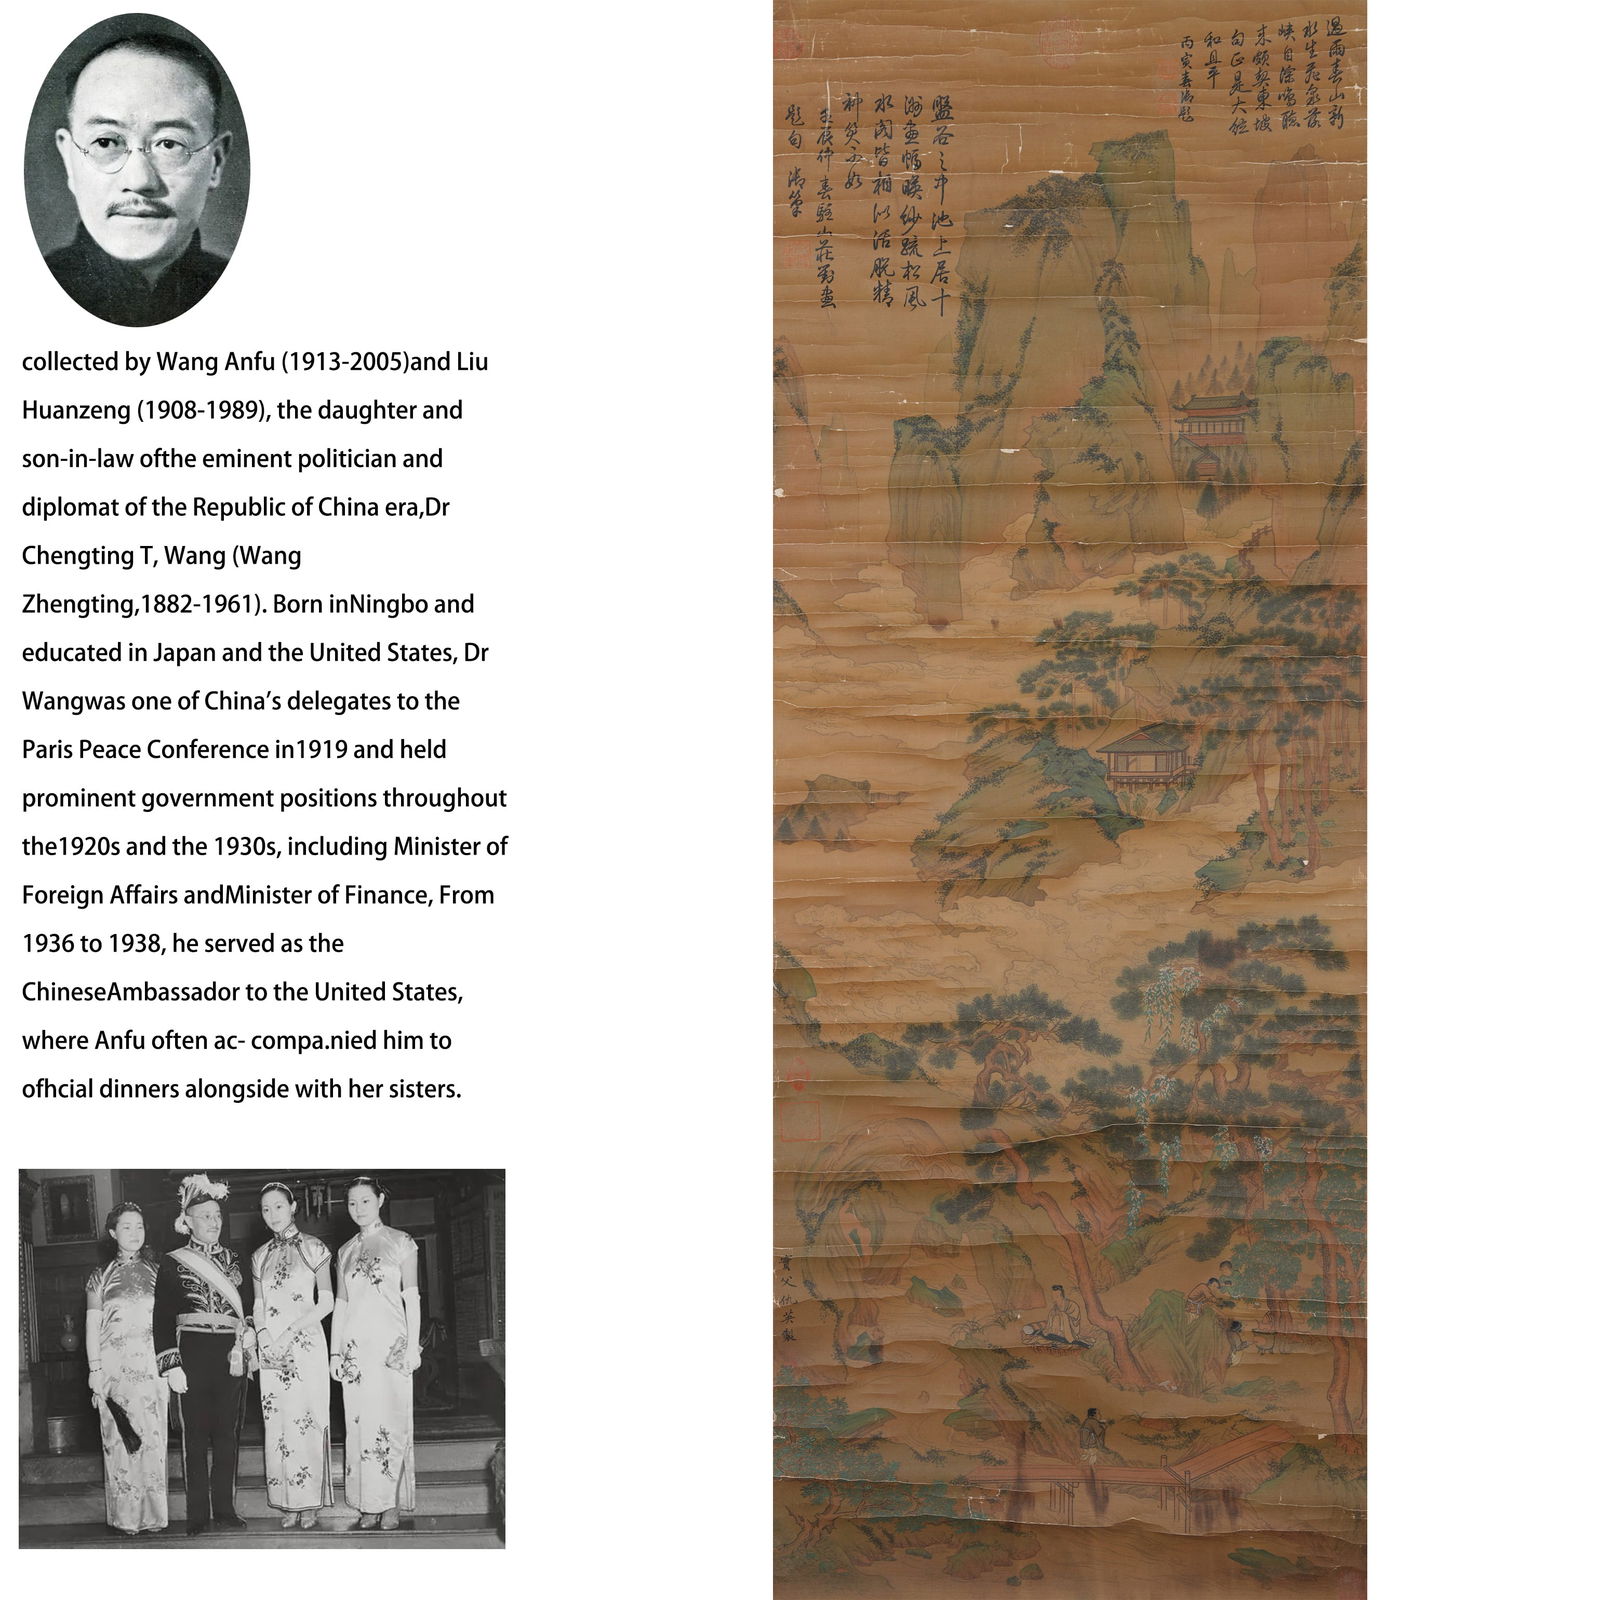 collected by Wang Anfu (1913-2005)and Liu
Huanzeng (1908-1989), the daughter and
son-in-law ofthe eminent politician and
diplomat of the Republic of China era,Dr
Chengting T, Wang (Wang
Zhengting,1882-1961). Born inNingbo and
educated in Japan and the United States, Dr
Wangwas one of China’s delegates to the
Paris Peace Conference in1919 and held
prominent government positions throughout
the1920s and the 1930s, including Minister of
Foreign Affairs andMinister of Finance, From
1936 to 1938, he served as the
ChineseAmbassador to the United States,
where Anfu often ac- compa.nied him to
ofhcial dinners alongside with her sisters.
過雨春山新
水生飛泉落
峽自淙鳴聽
來頗契東坡
句正是大絃
和且平
丙寅春御題
盤谷之中池上居十
洲畫幅暎紗疏松風
水閣皆相似活脫精
神笑不如
壬辰仲春駐山莊對畫
題句 御筆
實父仇英製